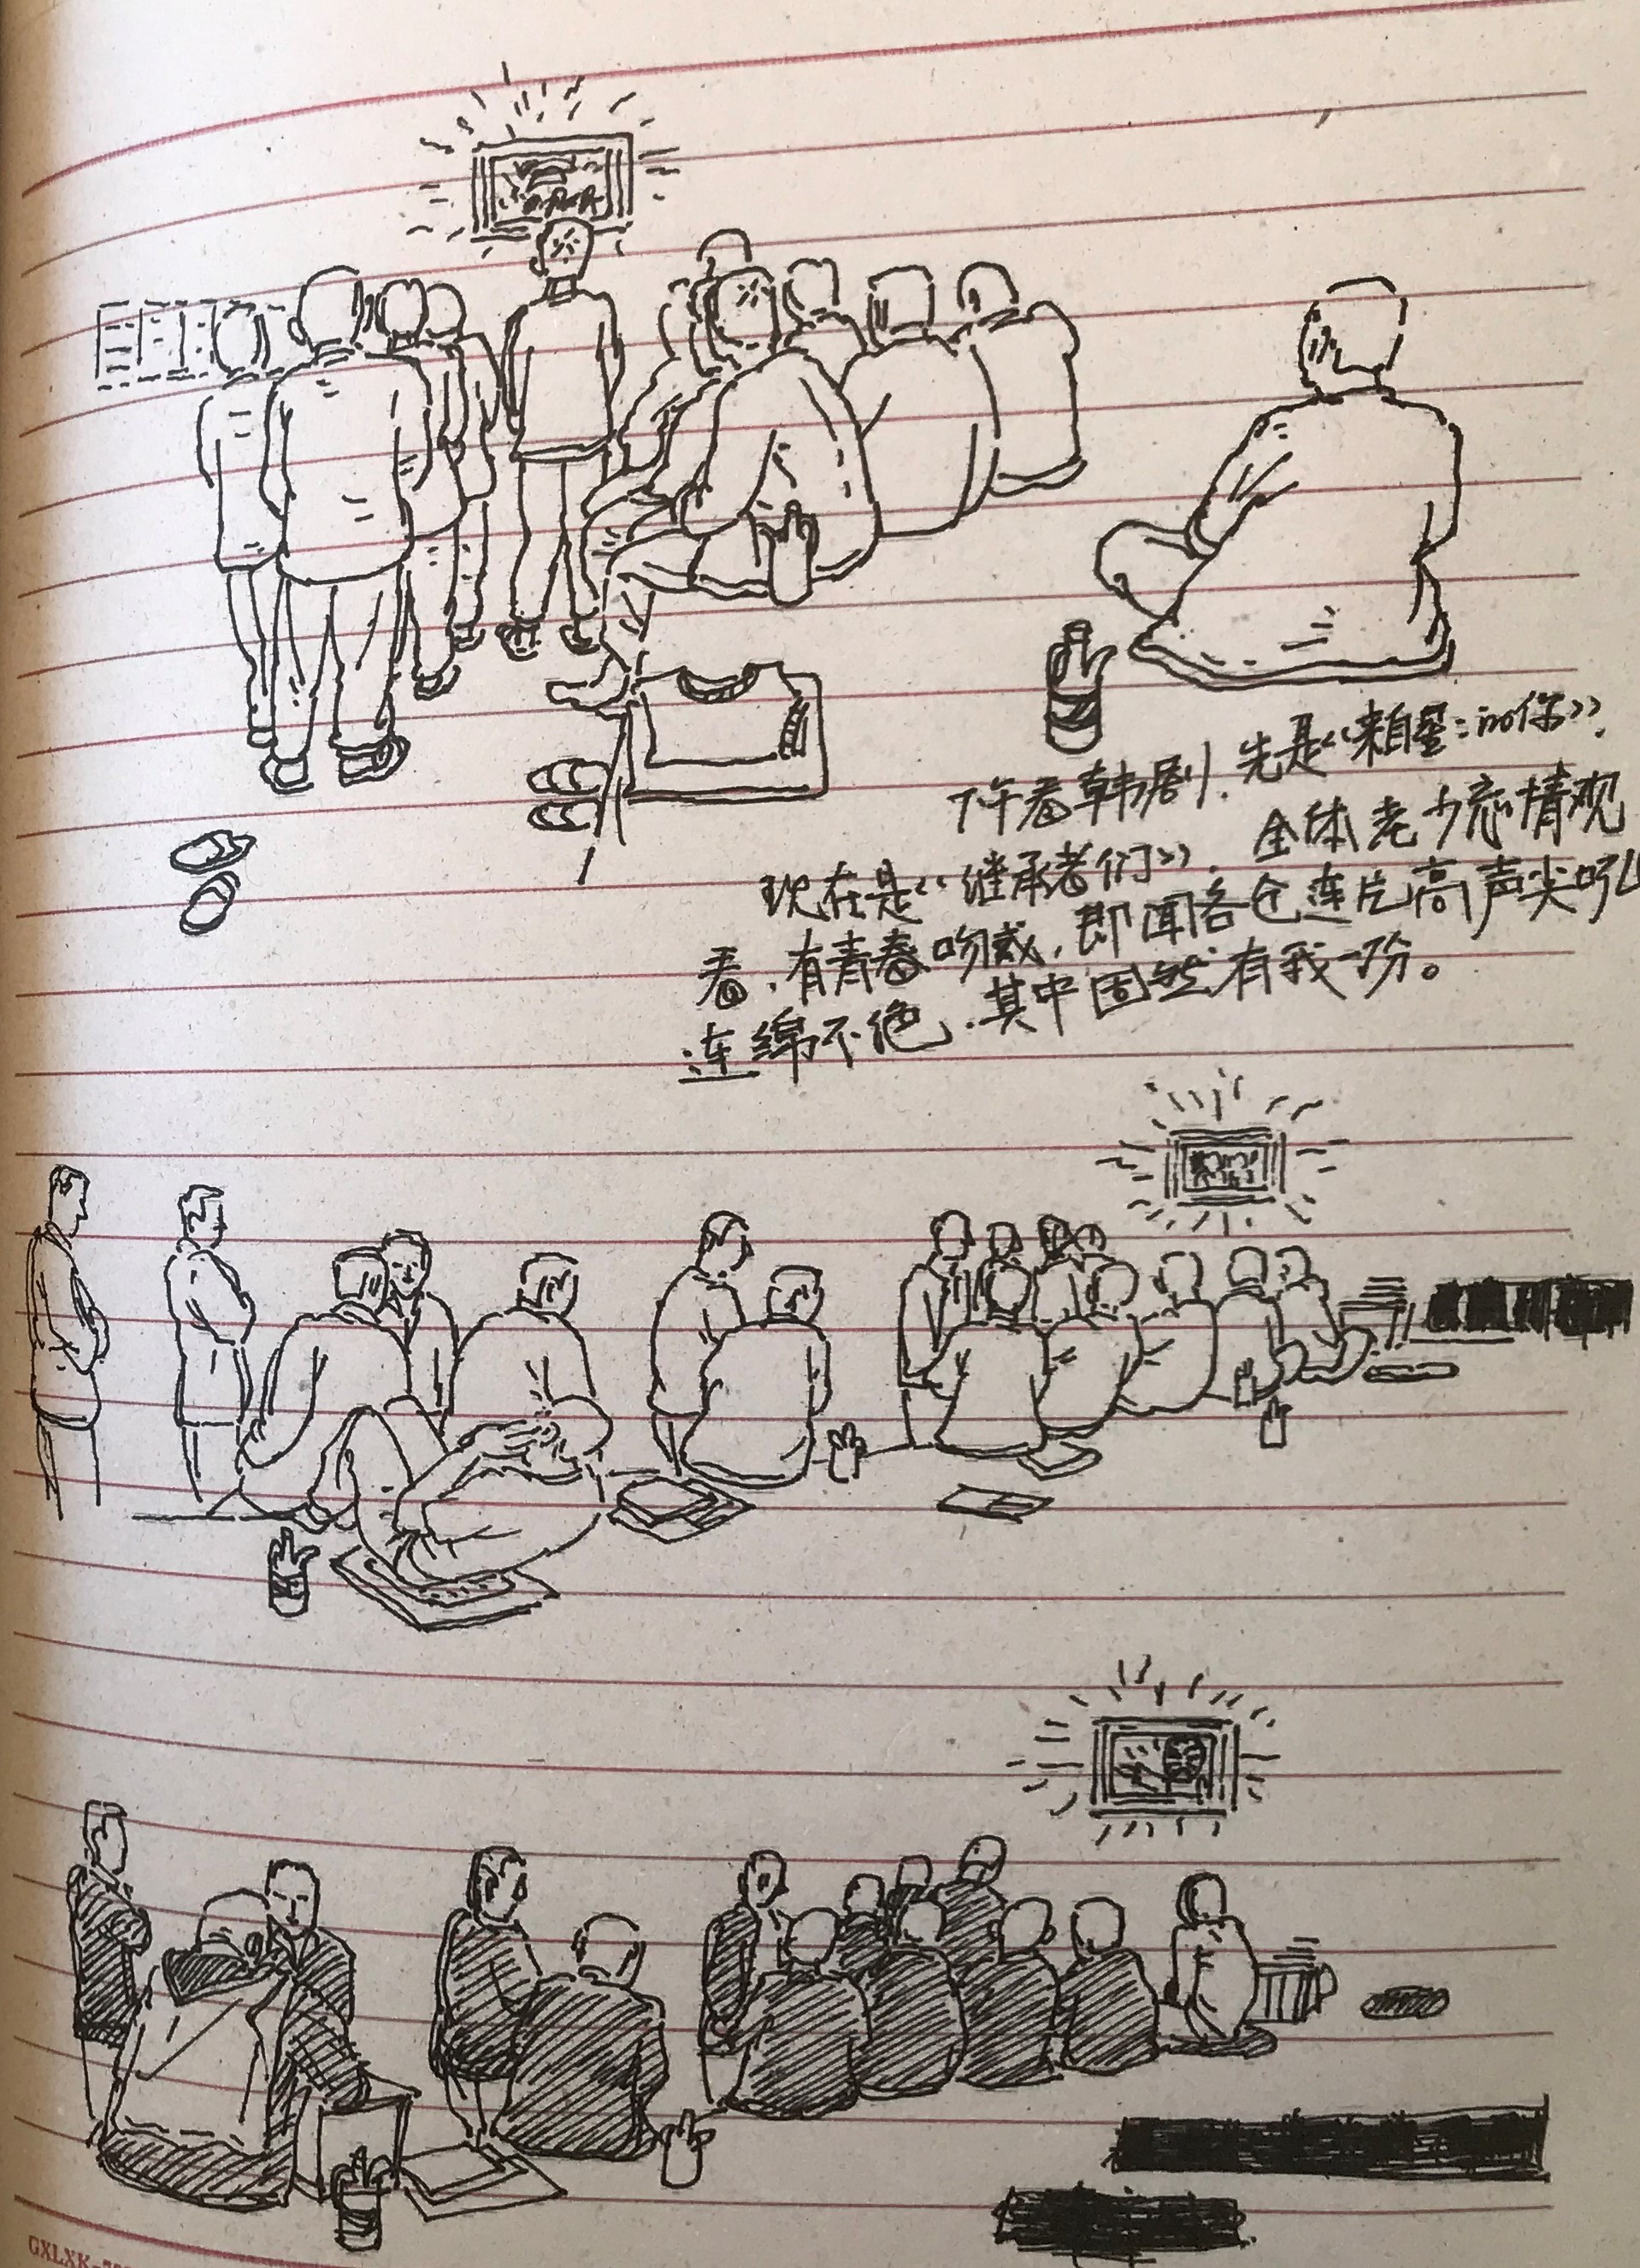 下午看韩剧，先是《来自星星的你》，
现在是《继承者们》，全体老少忘情观
看，有青春吻戏，即闻各仓连片高声尖叫
连绵不绝，其中固然有我一份。
GXLXK-